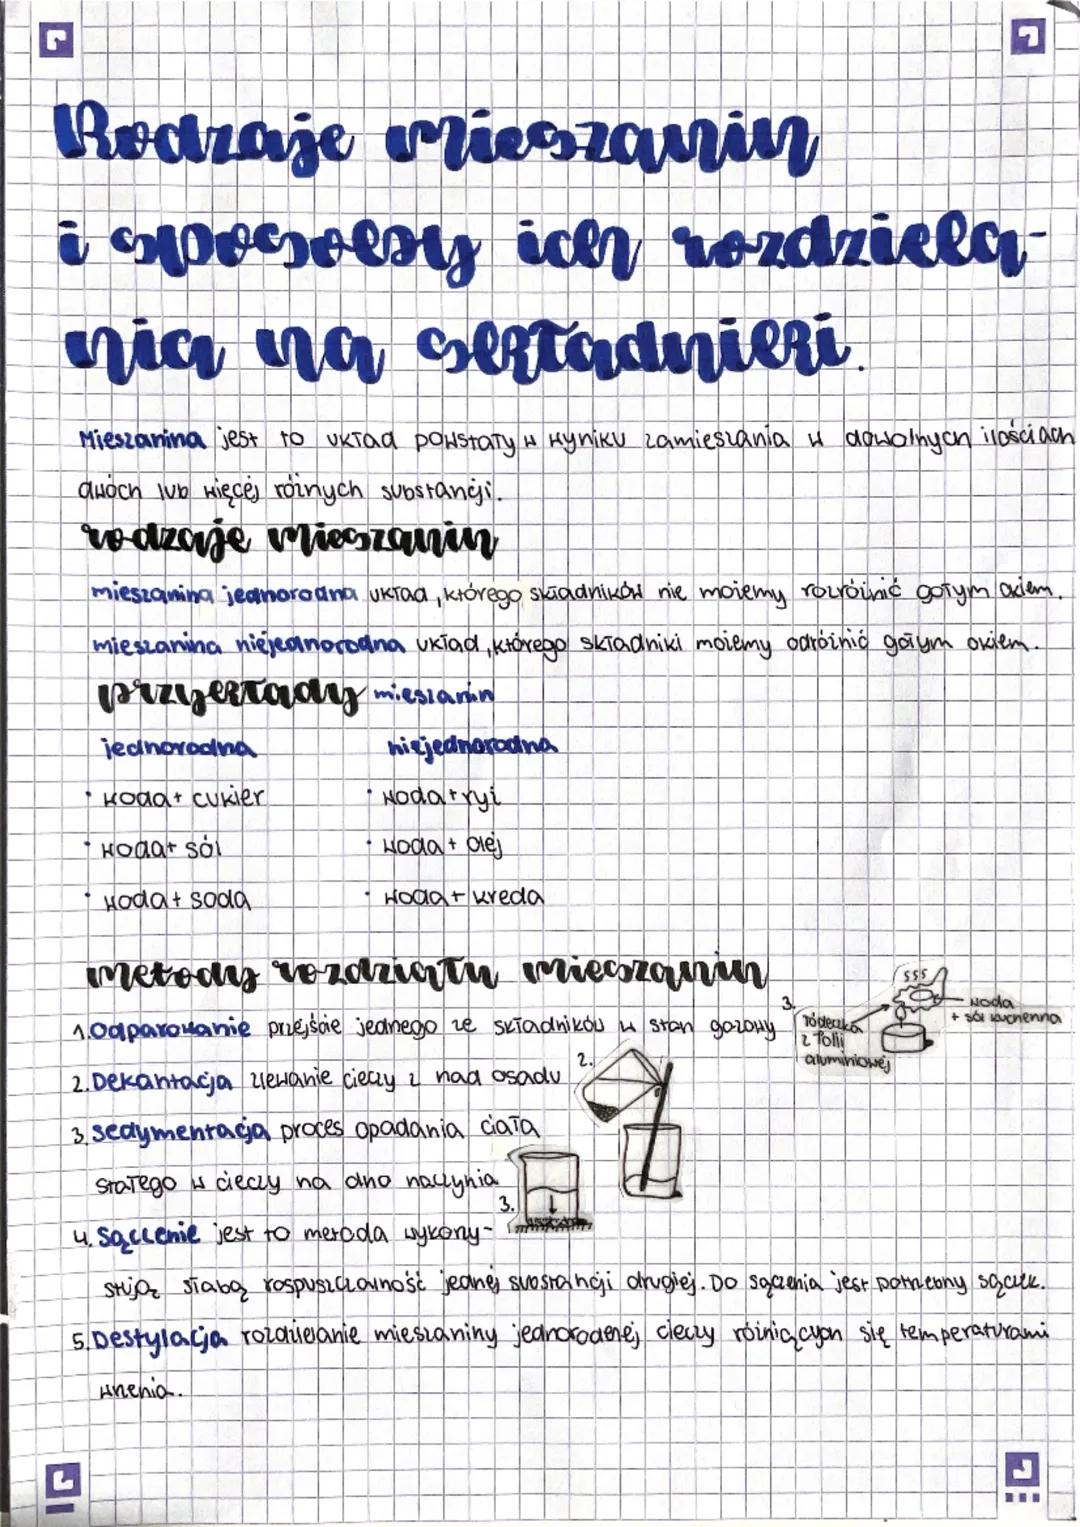 Rodzaje mieszanin
i sposoby ich rozdziela-
nia na składniki.
Mieszanina jest to układ powstały w wyniku zamieszania w dowolnych ilościach
dwóch lub więcej różnych substancji.
rodzaje mieszanin
mieszanina jednorodna układ, którego składników nie możemy rozróżnić gołym okiem.
mieszanina niejednorodna układ, którego składniki możemy odróżnić gołym okiem.
przykłady mieszanin
jednorodna niejednorodna
• woda + cukier • woda + ryż
• woda + sól • woda + olej
• woda + soda • woda + kreda
metody rozdziału mieszanin
1. Odparowanie przejście jednego ze składników w stan gazowy
3.
sss
łódeczka
z folii
aluminiowej
woda
+ sól kuchenna
2. Dekantacja zlewanie cieczy z nad osadu
2.
3. sedymentacja proces opadania ciała
stałego w cieczy na dno naczynia
3.
4. Sączenie jest to metoda wykony-
stują słabą rospuszczalność jednej substancji drugiej. Do sączenia jest potrzebny sączek.
5. Destylacja rozdzielanie mieszaniny jednorodenej cieczy różniących się temperaturami
wrzenia.